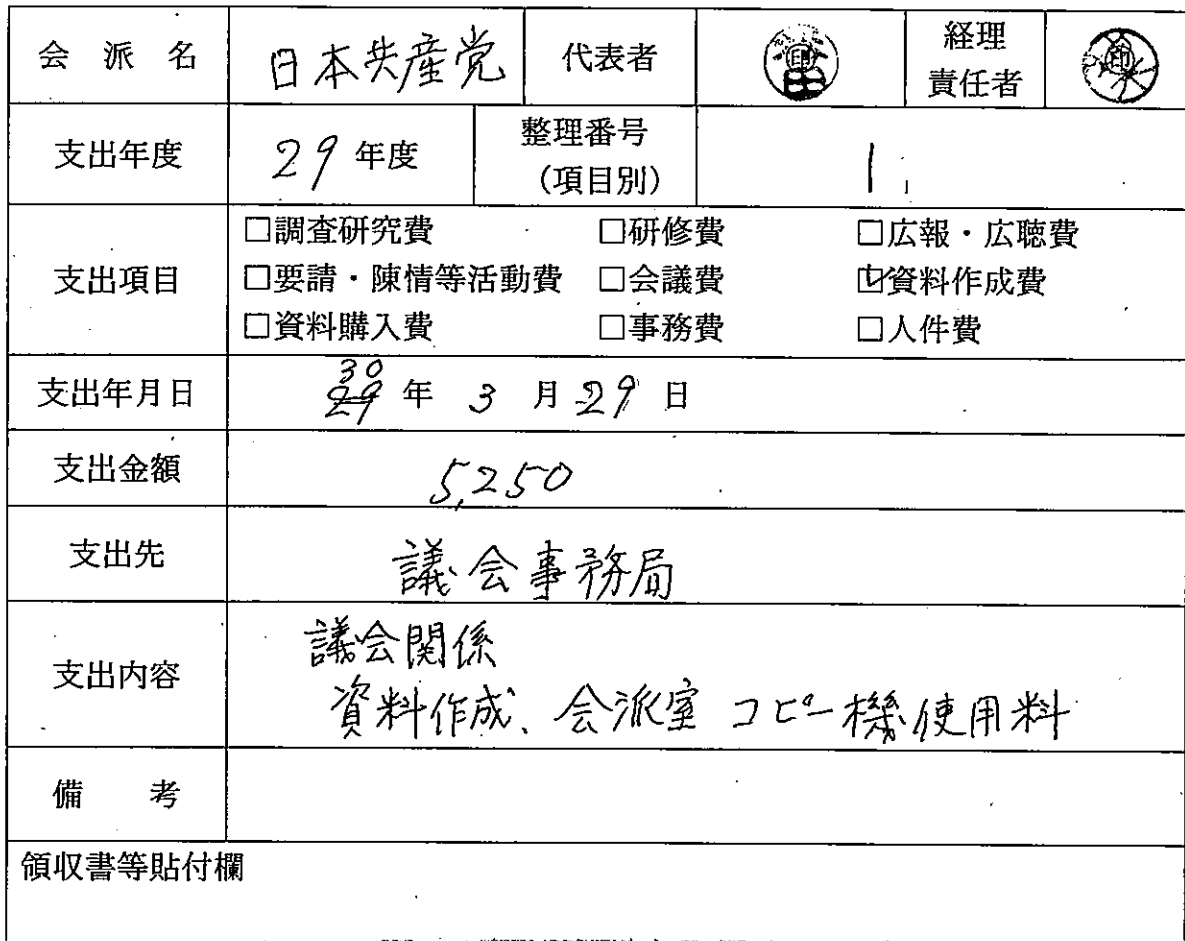 会派名 日本共産党 代表者 印 経理責任者 印
支出年度 29年度 整理番号（項目別） 1
支出項目
□調査研究費 □研修費 □広報・広聴費
□要請・陳情等活動費 □会議費 ☑資料作成費
□資料購入費 □事務費 □人件費
支出年月日 30 29年3月29日
支出金額 5,250
支出先 議会事務局
支出内容 議会関係
資料作成、会派室 コピー機使用料
備考
領収書等貼付欄